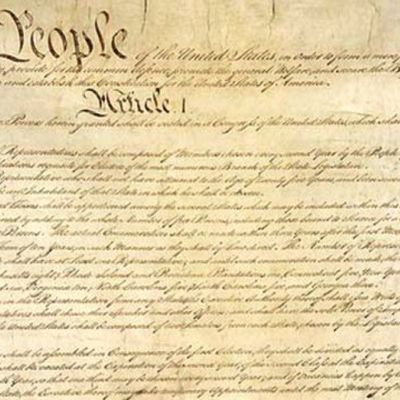 People of the United States, in Order to form a more
provide for the common defence, promote the general Welfare, and secure the
and establish this Constitution for the United States of America.
Article I
Powers herein granted shall be vested in a Congress of the United States, which
Representatives shall be composed of Members chosen every second Year by the People
requisite for Electors of the most numerous Branch of the State Legislature.
Representative who shall not have attained to the Age of twenty five Years, and been
be an Inhabitant of that State in which he shall be chosen.
Taxes shall be apportioned among the several States which may be included within this
by adding to the whole Number of free Persons, including those bound to Service for a
Persons. The actual Enumeration shall be made within three Years after the first
Term of ten Years, in such Manner as they shall by Law direct. The Number of
shall have at Least one Representative; and until such enumeration shall be made, the
eight, Rhode Island and Providence Plantations one, Connecticut five, New
six, Virginia ten, North Carolina five, South Carolina five, and Georgia three.
in the Representation from any State, the Executive Authority thereof shall issue Writs
shall chuse their Speaker and other Officers; and shall have the sole Power of
United States shall be composed of two Senators from each State, chosen by the
shall be assembled in Consequence of the first Election, they shall be divided as equally
shall be vacated at the Expiration of the second Year, of the second Class at the Expiration
Year, so that one third may be chosen every second Year; and if Vacancies happen by
State, the Executive thereof may make temporary Appointments until the next Meeting of the